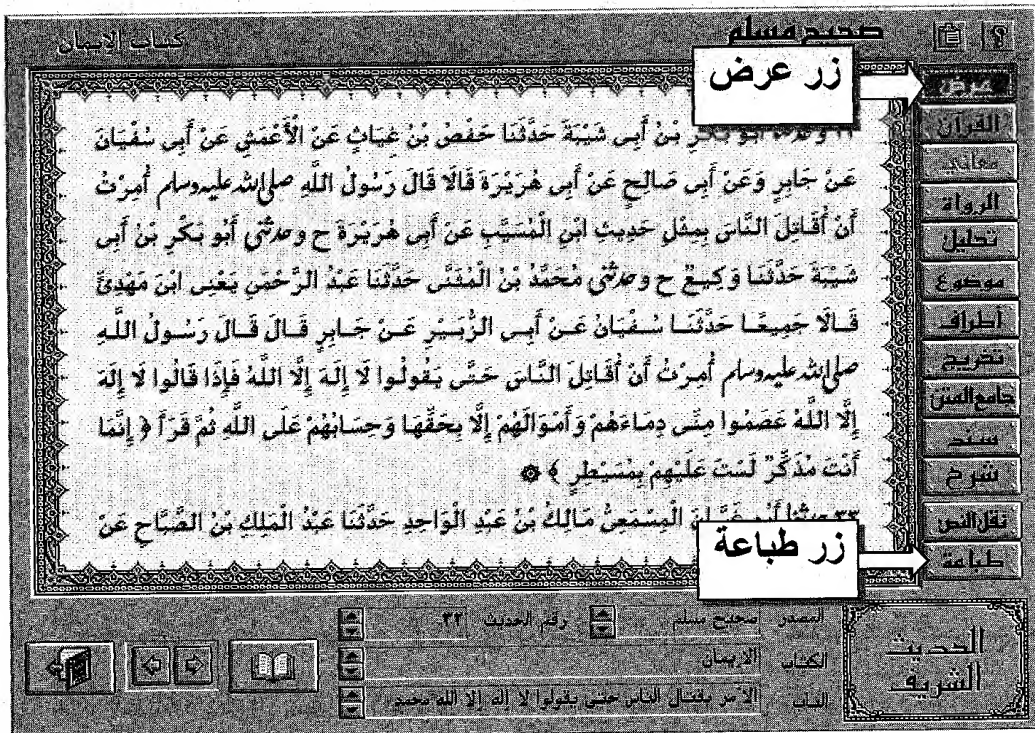 صحيح مسلم
كتاب الإيمان
زر عرض
عرض
القرآن
معاني
الرواة
تحليل
موضوع
أطراف
تخريج
جامع المتن
سند
شرح
نقل النص
طباعة
أَبُو بَكْرِ بْنُ أَبِى شَيْبَةَ حَدَّثَنَا حَفْصُ بْنُ غِيَاثٍ عَنْ الْأَعْمَشِ عَنْ أَبِى سُفْيَانَ
عَنْ جَابِرٍ وَعَنْ أَبِى صَالِحٍ عَنْ أَبِى هُرَيْرَةَ قَالَا قَالَ رَسُولُ اللَّهِ صلى الله عليه وسلم أُمِرْتُ
أَنْ أُقَاتِلَ النَّاسَ بِمِثْلِ حَدِيثِ ابْنِ الْمُسَيَّبِ عَنْ أَبِى هُرَيْرَةَ ح وحدثنى أَبُو بَكْرِ بْنُ أَبِى
شَيْبَةَ حَدَّثَنَا وَكِيعٌ ح وحدثنى مُحَمَّدُ بْنُ الْمُثَنَّى حَدَّثَنَا عَبْدُ الرَّحْمَنِ يَعْنِى ابْنَ مَهْدِىٍّ
قَالَا جَمِيعًا حَدَّثَنَا سُفْيَانُ عَنْ أَبِى الزُّبَيْرِ عَنْ جَابِرٍ قَالَ قَالَ رَسُولُ اللَّهِ
صلى الله عليه وسلم أُمِرْتُ أَنْ أُقَاتِلَ النَّاسَ حَتَّى يَقُولُوا لَا إِلَهَ إِلَّا اللَّهُ فَإِذَا قَالُوا لَا إِلَهَ
إِلَّا اللَّهُ عَصَمُوا مِنِّى دِمَاءَهُمْ وَأَمْوَالَهُمْ إِلَّا بِحَقِّهَا وَحِسَابُهُمْ عَلَى اللَّهِ ثُمَّ قَرَأَ ﴿ إِنَّمَا
أَنْتَ مُذَكِّرٌ لَسْتَ عَلَيْهِمْ بِمُسَيْطِرٍ ﴾
٣٣ حدثنا أَبُو غَسَّانَ الْمِسْمَعِىُّ مَالِكُ بْنُ عَبْدِ الْوَاحِدِ حَدَّثَنَا عَبْدُ الْمَلِكِ بْنُ الصَّبَّاحِ عَنْ
زر طباعة
المصدر صحيح مسلم رقم الحديث ٣٢
الكتاب الإيمان
الباب الأمر بقتال الناس حتى يقولوا لا إله إلا الله محمد
الحديث
الشريف